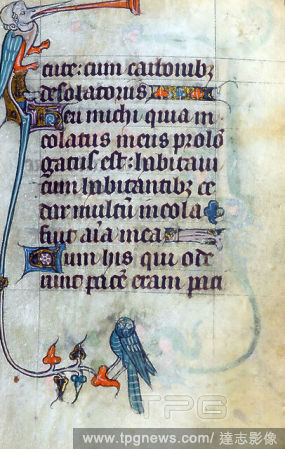 cute: cum carbonibꝫ
desolatoriis
Heu michi quia in
colatus meus prolon
gatus est: habitaui
cum habitantibꝫ ce
dar multum incola
fuit aīa mea
Cum his qui ode
runt pacē eram paci
TPG
www.tpgnews.com/ 達志影像